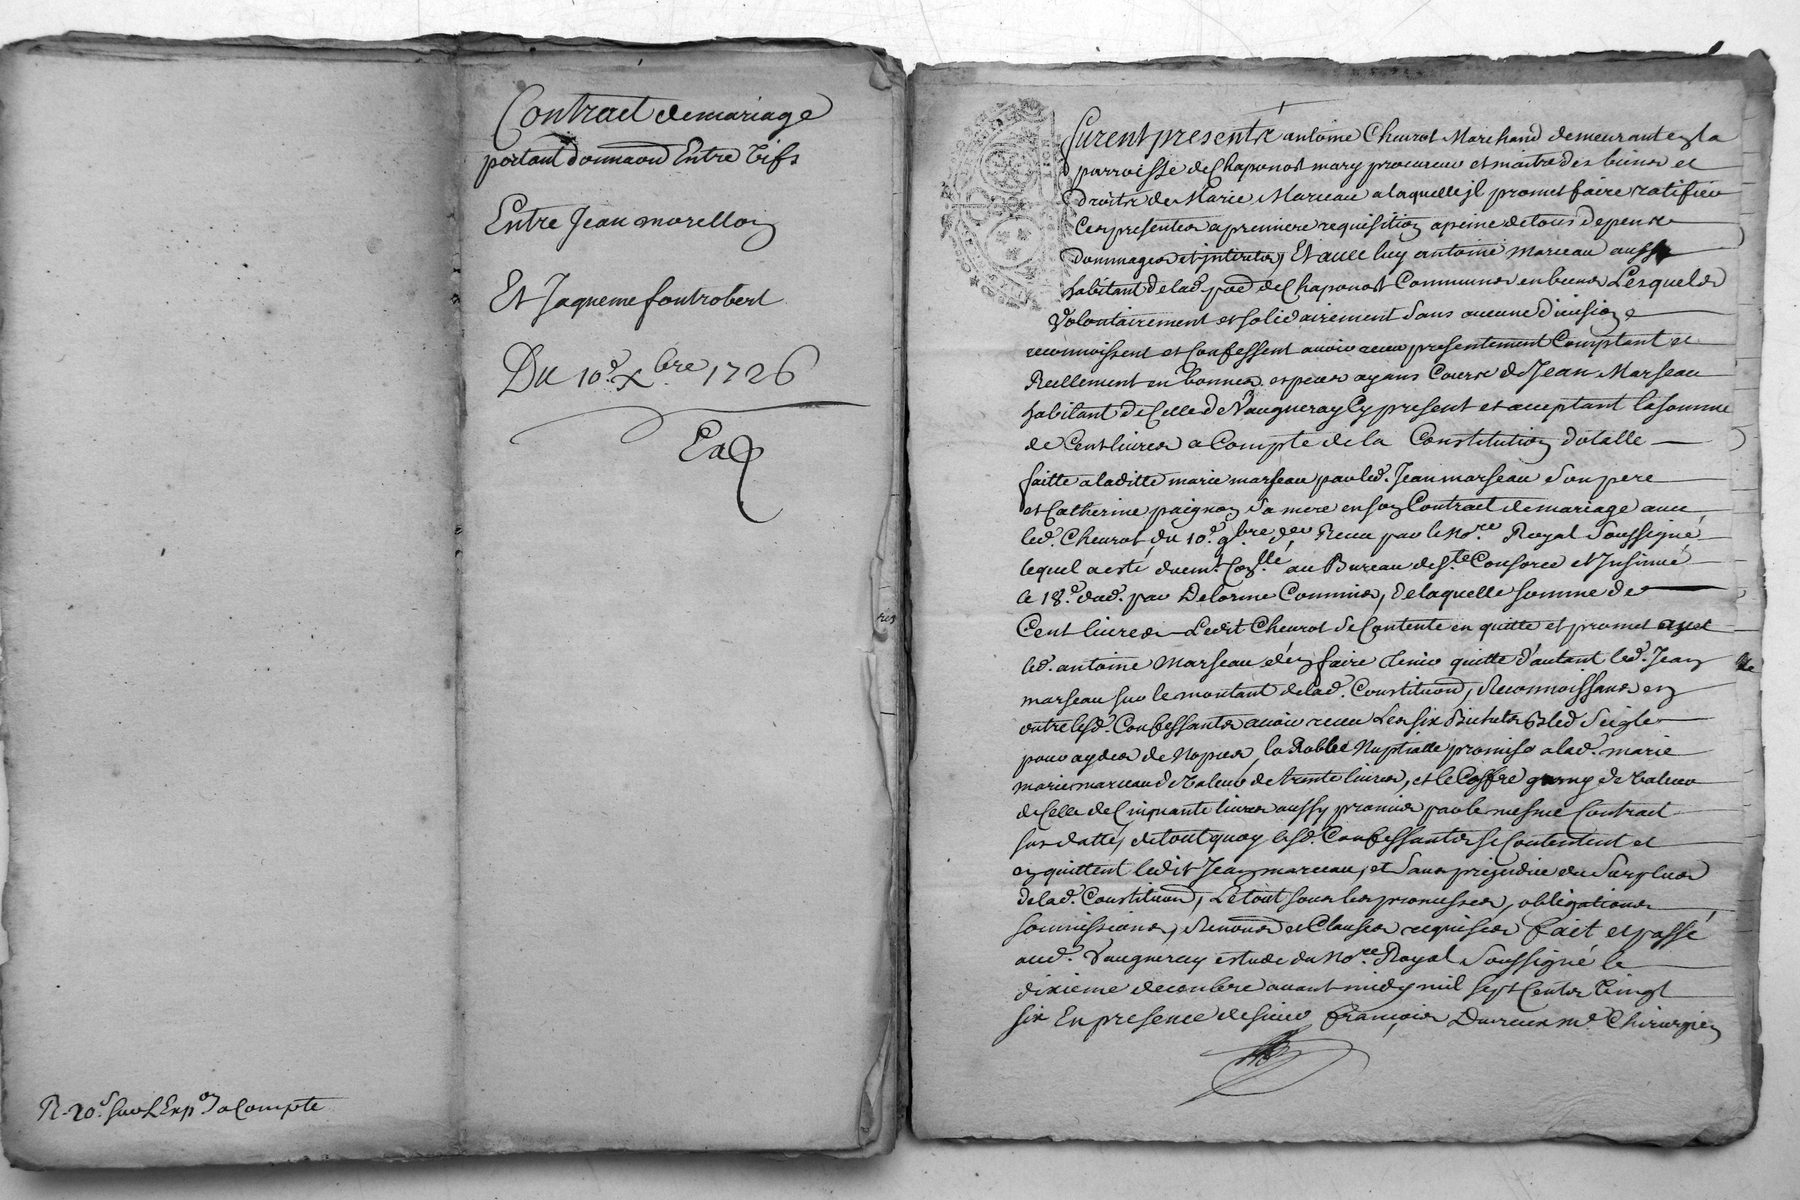 Contract de mariage
portant donnaõn Entre Vifs
Entre Jean morellon
Et Jaqueme fontrobert
Du 10e. xbre 1726
R. 20s. sur L'Exp.on a Compte
Furent presents antoine Cheurot Marchand demeurant en la
parroisse de Chaponost mary procureur et maitre des biens et
droits de Marie Marceau a laquelle jl promet faire ratifier
Ces presentes a premiere requisition a peine de tous depens
dommages et interets, Et avec luy antoine Marceau aussy
habitant de lad. par. de Chaponost Communs en biens Lesquels
Volontairement et solidairement sans aucune division
reconnoissent et Confessent avoir receu presentement Comptant et
Reellement en bonnes especes ayans Cours de Jean Marseau
habitant de Celle de Vaugneray Cy present et acceptant la somme
de Cent livres a Compte de la Constitution dotalle
faitte a laditte marie marseau par led. Jean marseau son pere
et Catherine paignon sa mere en son Contract de mariage avec
led. Cheurot du 10e. 9bre der. Receu par le No.re Royal soussigné
lequel a esté duem.t Con.llé au Bureau de S.te Consorce et Insinué
le 18e. dud. par Delorme Commis, de laquelle somme de
Cent livres Ledit Cheurot se Contente en quitte et promet avec
led. antoine Marseau d'en faire tenir quitte d'autant led. Jean
marseau sur le montant de lad. Constituõn, Reconnoissans en
outre lesd. Confessants avoir receu Les six Bichets Bled seigle
pour ayder de Nopces, la Robbe Nuptialle promise a lad. marie
marie marceau de Valeur de trente livres, et le Coffre garny de Valeur
de Celle de Cinquante livres aussy promis par le mesme Contract
sus datté, de tout quoy lesd. Confessants se Contentent et
en quittent ledit Jean marceau, et sans prejudice du surplus
de lad. Constituõn, Le tout sous les promesses, obligations
soumissions, Renons et Clauses requises fait et passé
aud. Vaugneray estude du No.re Royal soussigné le
dixieme decembre avant midy mil sept Cents Vingt
six En presence de sieur François Dureux me. Chirurgien